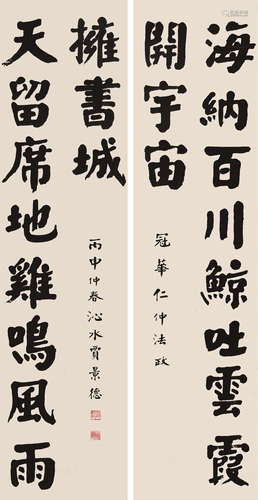 海納百川鯨吐雲霞
開宇宙
冠華仁仲法政
擁書城
天留席地雞鳴風雨
丙申仲春沁水賈景德